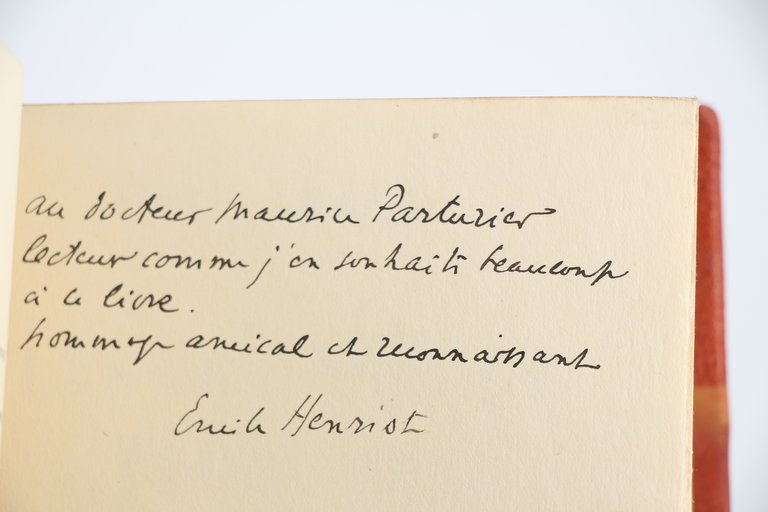 au docteur Maurice Parturier
lecteur comme j'en souhaite beaucoup
à ce livre.
hommage amical et reconnaissant
Emile Henriot